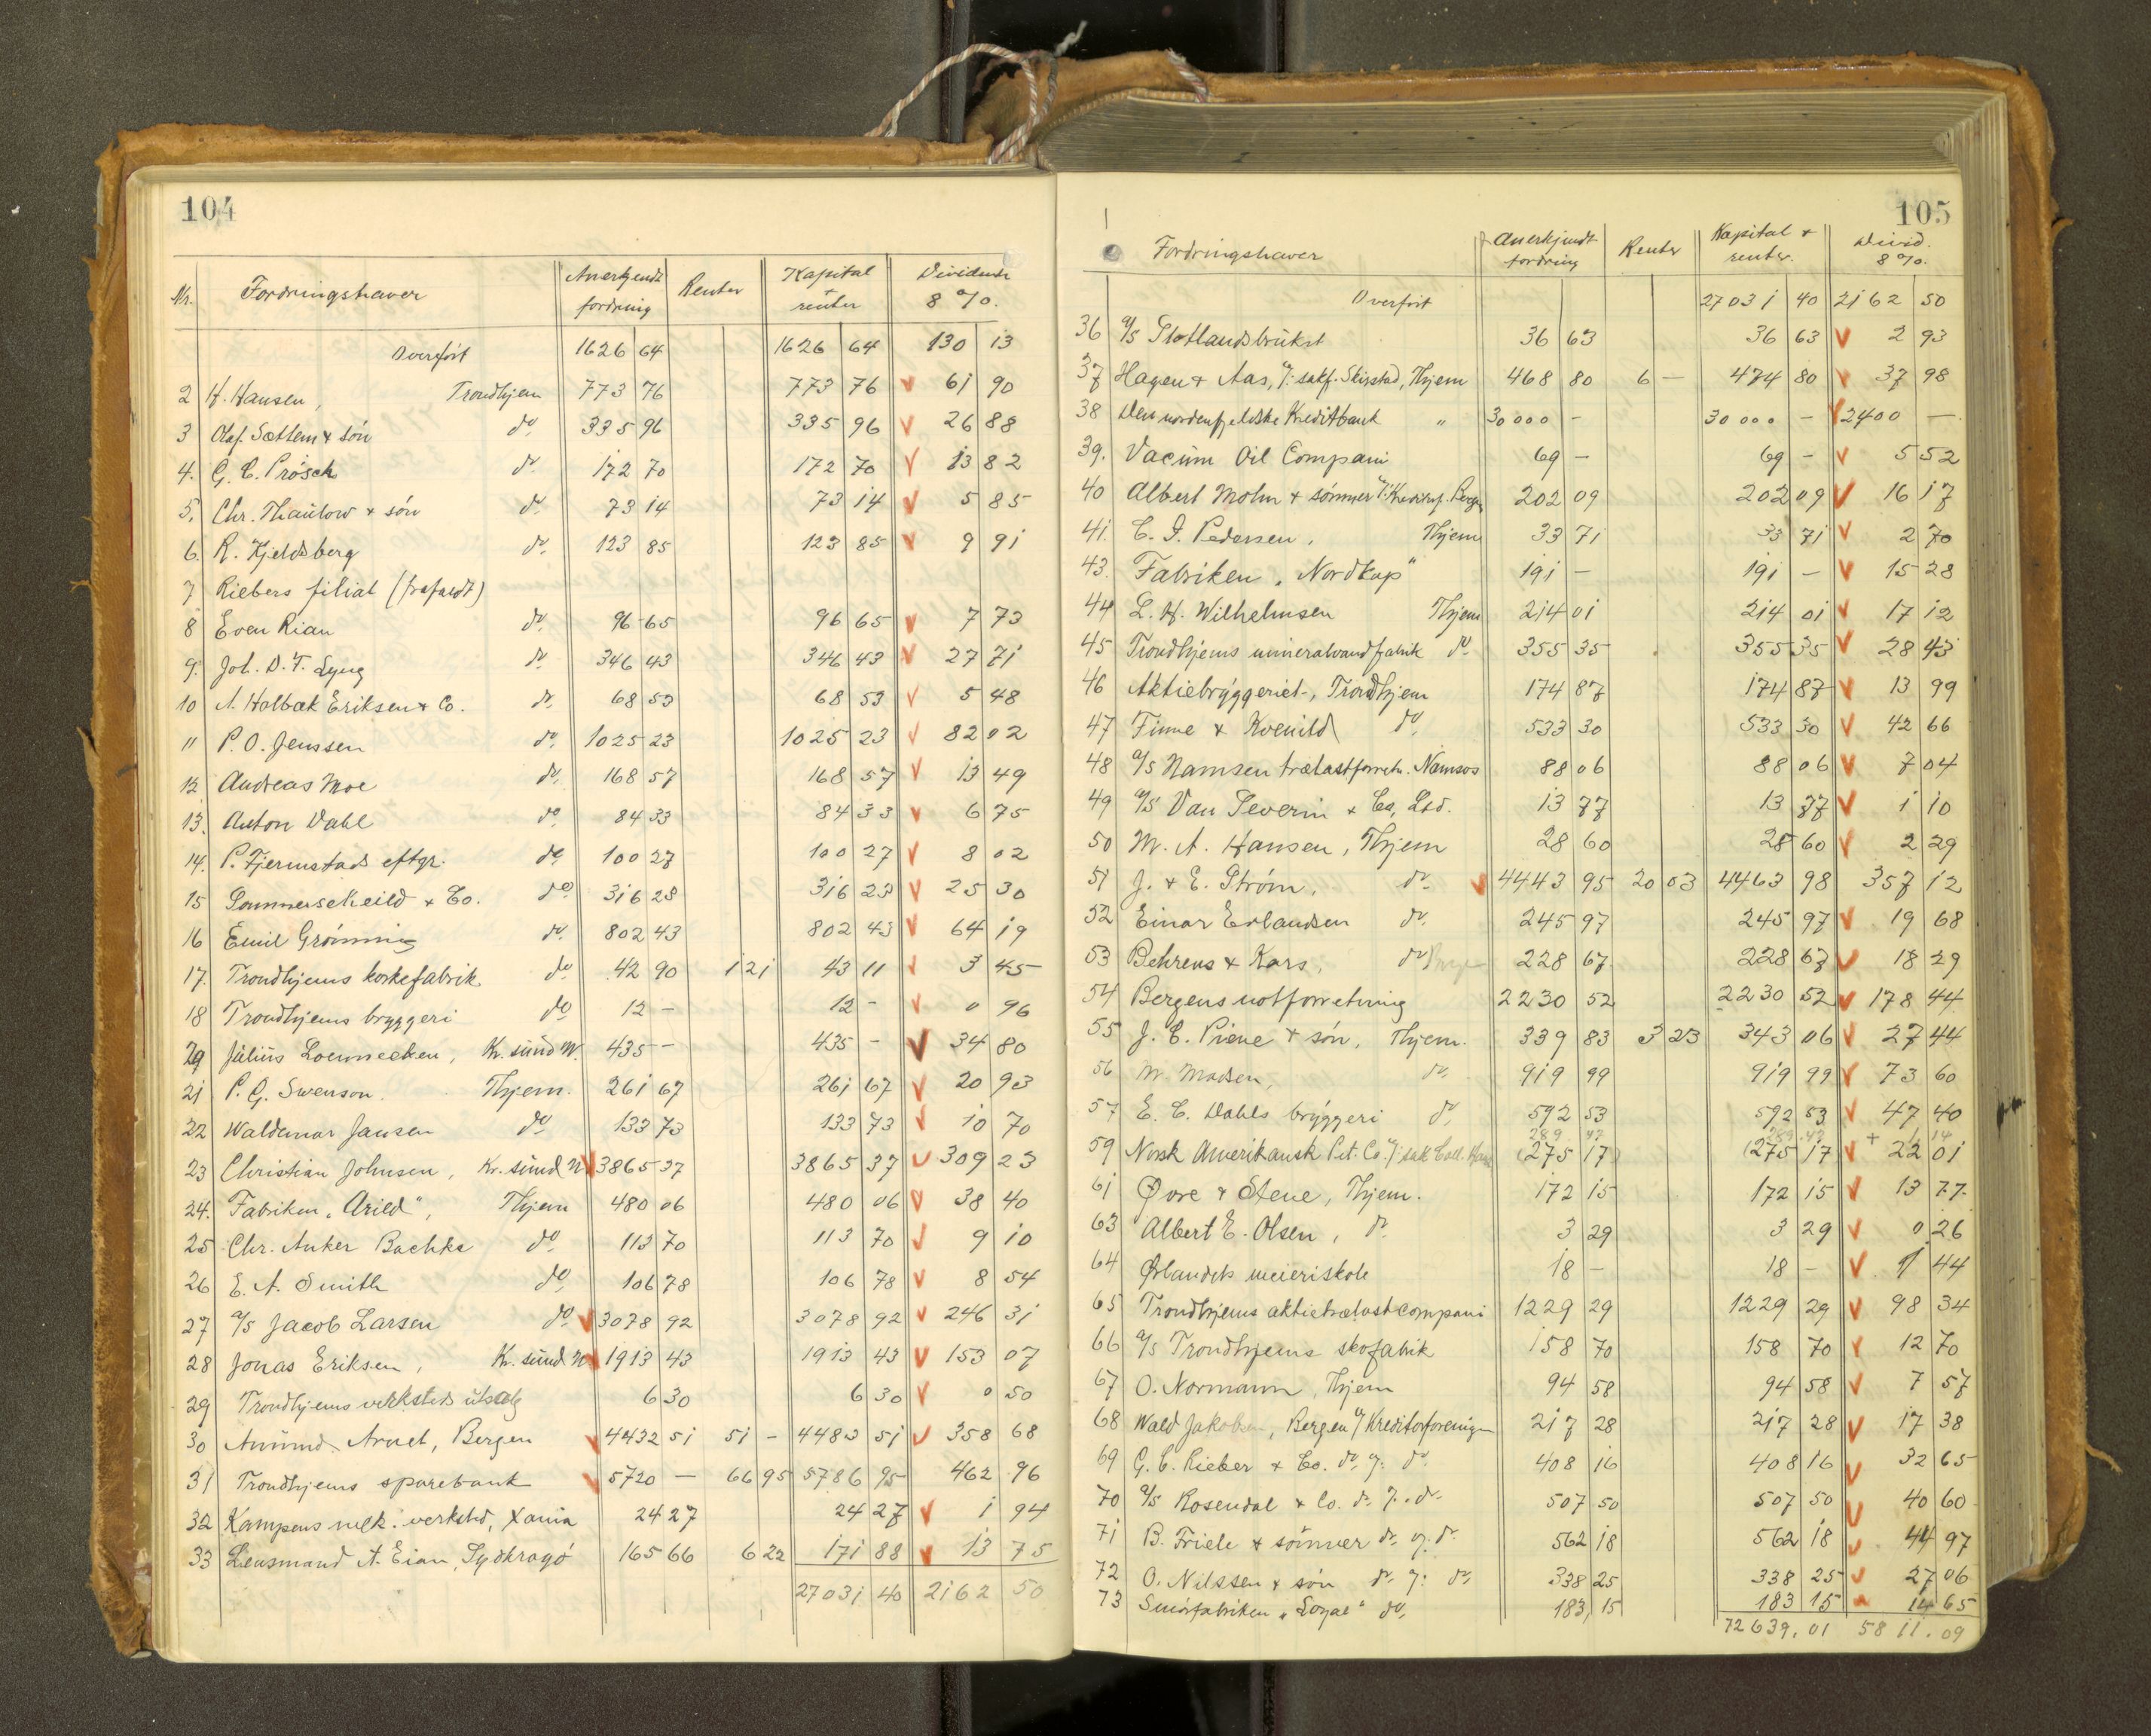 104
Nr. Fordringshaver Anerkjendt fordring Renter Kapital + renter Dividende 8 %.
Overført 1626 64 1626 64 130 13
2 H. Hansen, Trondhjem 773 76 773 76 61 90
3 Olaf Sættem & søn do. 335 96 335 96 26 88
4. G. C. Prösch do. 172 70 172 70 13 82
5. Chr. Thaulow & søn do. 73 14 73 14 5 85
6. R. Kjeldsberg do. 123 85 123 85 9 91
7 Riebers filial (frafaldt)
8 Even Rian do. 96 65 96 65 7 73
9. Joh. D. T. Lyng do. 346 43 346 43 27 71
10 A. Holbæk Eriksen & Co. do. 68 53 68 53 5 48
11 P. O. Jenssen do. 1025 23 1025 23 82 02
12 Andreas Moe do. 168 57 168 57 13 49
13. Anton Dahl do. 84 33 84 33 6 75
14. P. Fjermstads eftgr. do. 100 27 100 27 8 02
15 Sommerscheild & Co. do. 316 28 316 28 25 30
16 Emil Grønning do. 802 43 802 43 64 19
17. Trondhjems korkefabrik do 42 90 1 21 43 11 3 45
18 Trondhjems bryggeri do 12 - 12 - 0 96
20 Julius Loennecken, Kr.sund N. 435 - 435 - 34 80
21 P. G. Swenson. Thjem. 261 67 261 67 20 93
22 Waldemar Jansen do 133 73 133 73 10 70
23 Christian Johnsen, Kr.sund N 3865 37 3865 37 309 23
24. Fabriken "Arild", Thjem 480 06 480 06 38 40
25 Chr. Anker Bachke do. 113 70 113 70 9 10
26 E. A. Smith do. 106 78 106 78 8 54
27 A/S Jacob Larsen do 3078 92 3078 92 246 31
28 Jonas Eriksen, Kr.sund N 1913 43 1913 43 153 07
29 Trondhjems verksteds utsalg 6 30 6 30 0 50
30 Amund Arnet, Bergen 4432 51 51 - 4483 51 358 68
31 Trondhjems sparebank 5720 - 66 95 5786 95 462 96
32 Kampens mek. verksted, Xania 24 27 24 27 1 94
33 Lensmand A. Eian, Sydkrogø 165 66 6 22 171 88 13 75
27031 40 2162 50
105
Fordringshaver Anerkjendt fordring Renter Kapital + renter. Divid. 8 %.
Overført 27031 40 2162 50
36 A/S Slotlandsbruket 36 63 36 63 2 93
37 Hagen & Aas, v/: sakf. Skirstad, Thjem 468 80 6 — 474 80 37 98
38 Den nordenfjeldske Kreditbank " 30000 - 30000 - 2400 —
39. Vacüm Oil Compani 69 - 69 - 5 52
40 Albert Mohn & sønner v/: Kreditorf. Bergen 202 09 202 09 16 17
41. C. I. Pedersen, Thjem 33 71 33 71 2 70
43. Fabriken "Nordkap" 191 - 191 - 15 28
44 L. H. Wilhelmsen Thjem 214 01 214 01 17 12
45 Trondhjems mineralvandfabrik do. 355 35 355 35 28 43
46 Aktiebryggeriet, Trondhjem 174 87 174 87 13 99
47 Finne & Kvenild do. 533 30 533 30 42 66
48 A/S Namsen trælastforretn. Namsos 88 06 88 06 7 04
49 A/S Van Severin & Co, Ltd. 13 77 13 77 1 10
50 M. A. Hansen, Thjem 28 60 28 60 2 29
51 J. & E. Strøm, do. 4443 95 20 03 4463 98 357 12
52 Einar Erlandsen do. 245 97 245 97 19 68
53 Behrens & Kars, do 228 67 228 67 18 29
54 Bergens notforretning 2230 52 2230 52 178 44
55 J. C. Piene & søn, Thjem. 339 83 3 23 343 06 27 44
56 M. Madsen, do. 919 99 919 99 73 60
57 E. C. Dahls bryggeri do. 592 53 592 53 47 40
289 42 289 42 + 1 14
59 Norsk Amerikansk Pet. Co. v/: sakf. (275 17) (275 17 22 01
61 Øvre & Stene, Thjem. 172 15 172 15 13 77.
63 Albert E. Olsen, do. 3 29 3 29 0 26
64 Ørlandets meieriskole 18 - 18 - 1 44
65 Trondhjems aktietrælastcompani 1229 29 1229 29 98 34
66 A/S Trondhjems skofabrik 158 70 158 70 12 70
67 O. Normann, Thjem 94 58 94 58 7 57
68 Wald Jakobsen, Bergen v/ Kreditorforeningen 217 28 217 28 17 38
69 G. C. Rieber & Co. do. v: do. 408 16 408 16 32 65
70 A/S Rosendal & Co. do. v: do. 507 50 507 50 40 60
71 B. Friele & sønner do. v: do. 562 18 562 18 44 97
72 O. Nilssen & søn do. v: do. 338 25 338 25 27 06
73 Smørfabriken "Loyal" do. 183 15 183 15 14 65
72639.01 5811.09